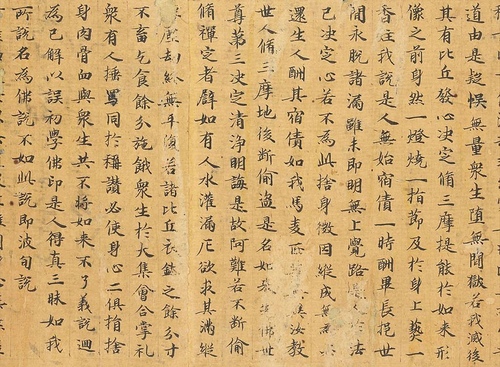 道由是疑悮無量衆生墮無間獄若我滅後
其有比丘發心決定脩三摩提能於如來形
像之前身然一燈燒一指節及於身上爇一
香炷我說是人無始宿債一時酬畢長挹世
間永脫諸漏雖未即明無上覺路於法
已決定心若不為此捨身微因縱成無
還生人酬其宿債如我馬麥正異汝教
世人脩三摩地後斷偷盜是名如來佛世
尊第三決定清淨明誨是故阿難若不斷偷
脩禪定者譬如有人水灌漏卮欲求其滿縱
塵劫終無平復若諸比丘衣鉢之餘分寸
不畜乞食餘分施餓衆生於大集會合掌札
衆有人捶詈同於稱讃必使身心二俱捐捨
身肉骨血與衆生共不將如來不了義說迴
為已解以誤初學佛印是人得真三昧如我
所說名為佛說不如此說即波旬說